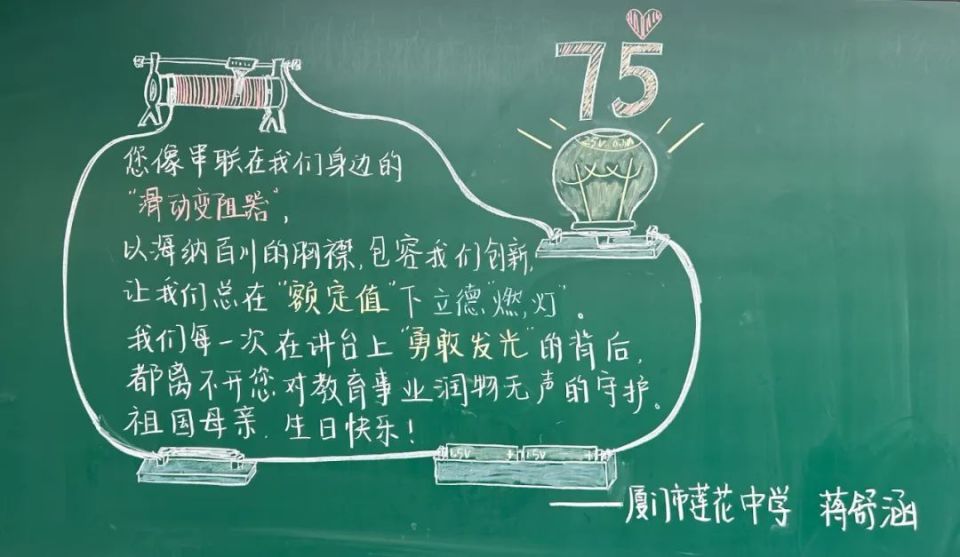 75
2.5V 0.3A
您像串联在我们身边的
“滑动变阻器”,
以海纳百川的胸襟,包容我们创新,
让我们总在“额定值”下立德“燃灯”。
我们每一次在讲台上“勇敢发光”的背后,
都离不开您对教育事业润物无声的守护。
祖国母亲.生日快乐!
1.5V + 1.5V +
——厦门市莲花中学 蒋舒涵